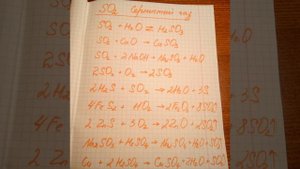 SO₂ Сернистый газ
SO₂ + H₂O ⇄ H₂SO₃
SO₂ + CaO → CaSO₃
SO₂ + 2NaOH → Na₂SO₃ + H₂O
2SO₂ + O₂ → 2SO₃
2H₂S + SO₂ → 2H₂O + 3S
4FeS₂ + 11O₂ → 2Fe₂O₃ + 8SO₂↑
2ZnS + 3O₂ → 2ZnO + 2SO₂↑
Na₂SO₃ + H₂SO₄ → Na₂SO₄ + H₂O + SO₂↑
Cu + 2H₂SO₄ → CuSO₄ + 2H₂O + SO₂↑